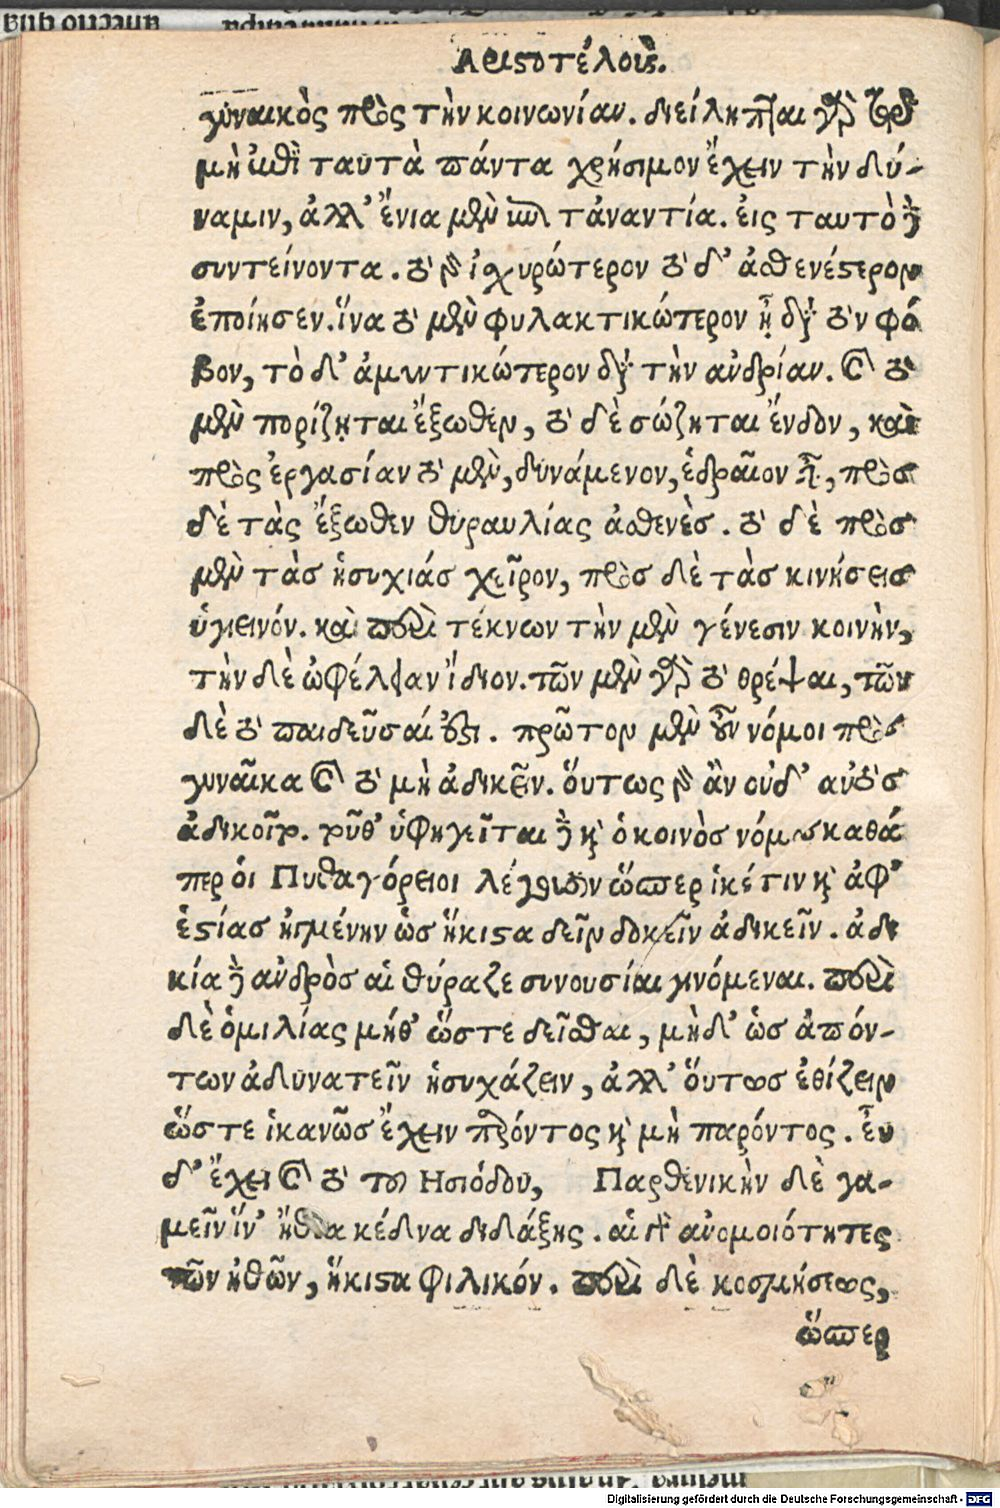 Ἀριστοτέλους.
γυναικὸς πρὸς τὴν κοινωνίαν. διείληπται γὰρ τῷ
μὴ ἐπὶ ταυτὰ πάντα χρήσιμον ἔχειν τὴν δύ-
ναμιν, ἀλλ' ἔνια μὲν ἐπὶ τἀναντία. εἰς ταυτὸ δὲ
συντείνοντα. τὸ γὰρ ἰσχυρότερον τὸ δ' ἀσθενέστερον
ἐποίησεν. ἵνα τὸ μὲν φυλακτικώτερον ᾖ διὰ τὸν φό
βον, τὸ δ' ἀμυντικώτερον διὰ τὴν ἀνδρίαν. καὶ τὸ
μὲν πορίζηται ἔξωθεν, τὸ δὲ σώζηται ἔνδον, καὶ
πρὸς ἐργασίαν τὸ μὲν, δυνάμενον, ἑδραῖον εἶναι, πρὸς
δὲ τὰς ἔξωθεν θυραυλίας ἀσθενὲς. τὸ δὲ πρὸς
μὲν τὰς ἡσυχιάς χεῖρον, πρὸς δὲ τὰς κινήσεις
ὑγιεινόν. καὶ περὶ τέκνων τὴν μὲν γένεσιν κοινὴν,
τὴν δὲ ὠφέλειαν ἴδιον. τῶν μὲν γὰρ τὸ θρέψαι, τῶν
δὲ τὸ παιδεῦσαί ἐστι. πρῶτον μὲν οὖν νόμοι πρὸς
γυναῖκα καὶ τὸ μὴ ἀδικεῖν. οὕτως γὰρ ἂν οὐδ' αὐτὸς
ἀδικοῖτο. τοῦθ' ὑφηγεῖται δὲ καὶ ὁ κοινὸς νόμος καθά
περ οἱ Πυθαγόρειοι λέγουσιν ὥσπερ ἱκέτιν καὶ ἀφ'
ἑστίας ἠγμένην ὡς ἥκιστα δεῖν δοκεῖν ἀδικεῖν. ἀδι
κία δὲ ἀνδρὸς αἱ θύραζε συνουσίαι γινόμεναι. περὶ
δὲ ὁμιλίας μήθ' ὥστε δεῖσθαι, μηδ' ὡς ἀπόν-
των ἀδυνατεῖν ἡσυχάζειν, ἀλλ' οὕτως ἐθίζειν
ὥστε ἱκανῶς ἔχειν παρόντος καὶ μὴ παρόντος. εὖ
δ' ἔχει καὶ τὸ τοῦ Ἡσιόδου, Παρθενικὴν δὲ γα-
μεῖν ἵν' ἤθεα κέδνα διδάξῃς. αἱ γὰρ ἀνομοιότητες
τῶν ἠθῶν, ἥκιστα φιλικόν. περὶ δὲ κοσμήσεως,
ὥσπερ
Digitalisierung gefördert durch die Deutsche Forschungsgemeinschaft - DFG